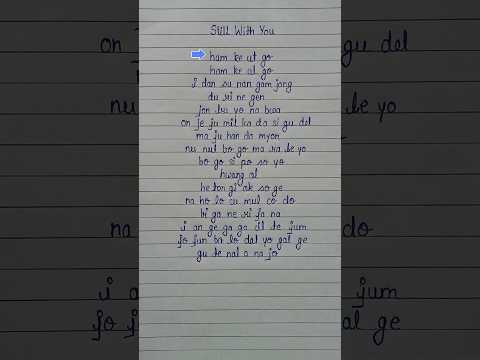 Still With You
ham ke ut go
ham ke ul go
i dan su nan gam jong
du ri ne gen
jon bu yo na bwa
on je ju mit ka da si gu del
ma ju han da myon
nu nul bo go ma ra le yo
bo go si po so yo
hwang al
he ton gi ak so ge
na ho lo cu mul co do
bi ga ne ri ja na
i an ge ga gu il te jum
jo jun ba lo dal yo gal ge
gu te nal a na jo